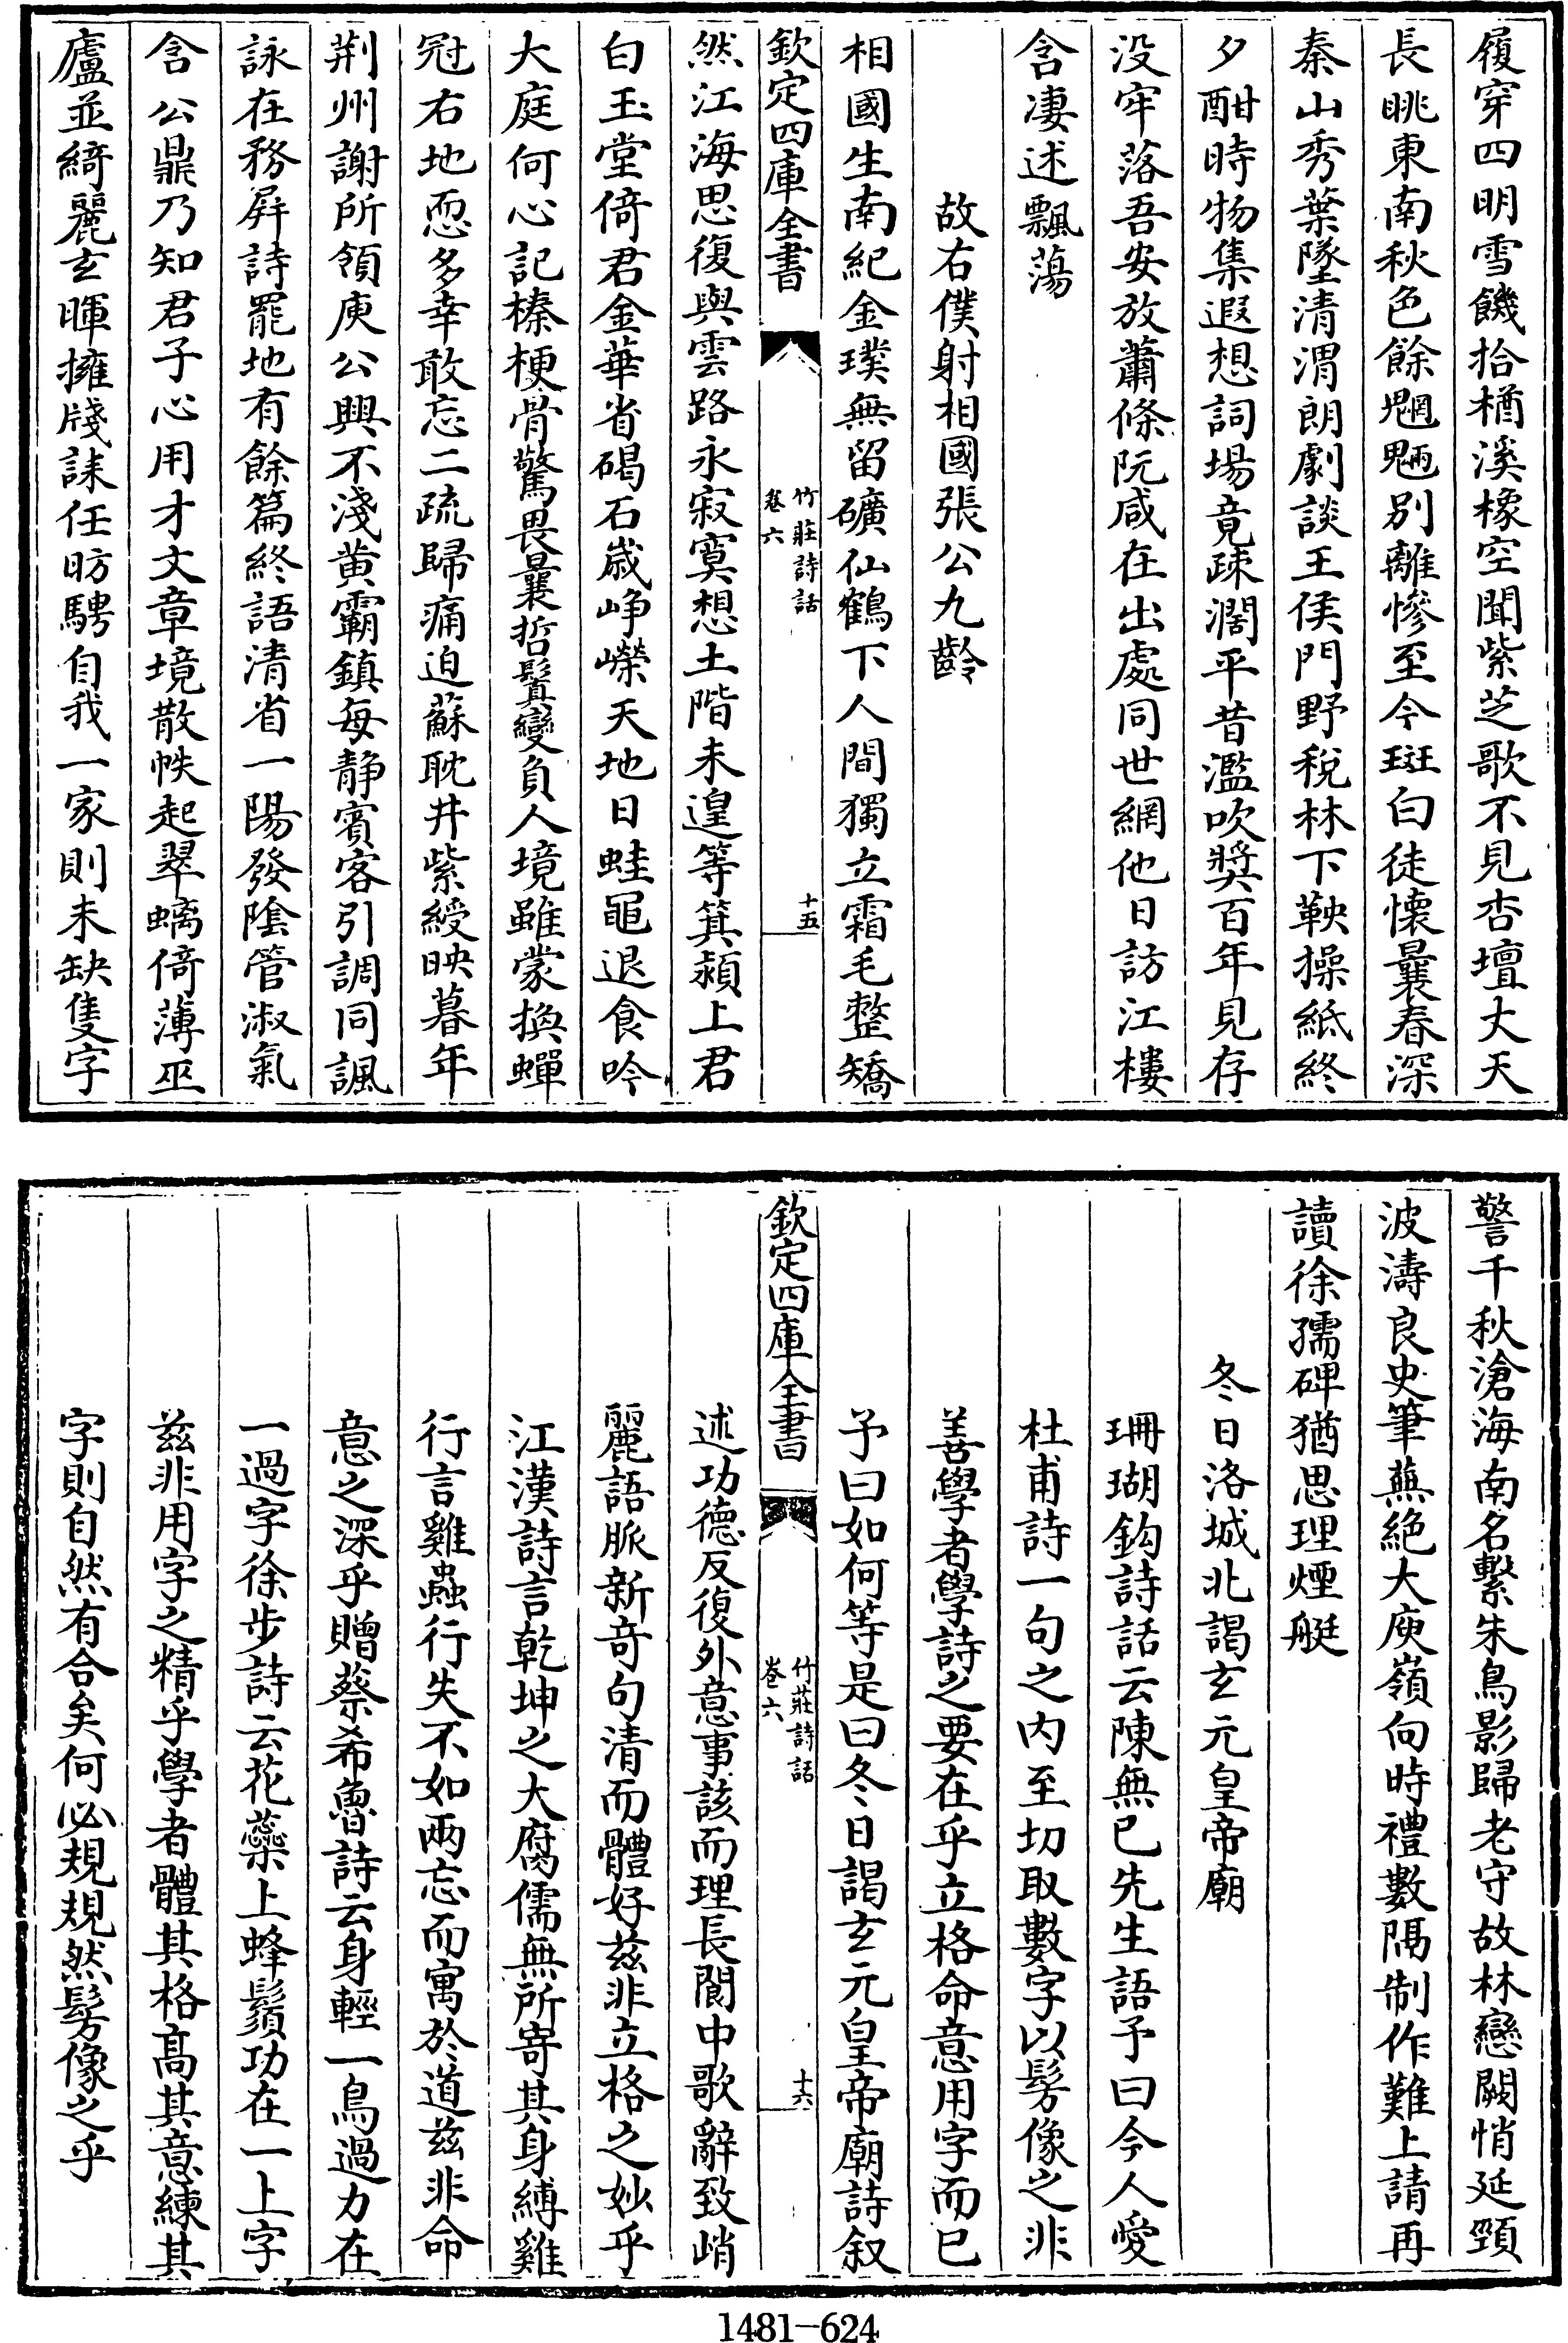 履穿四明雪饑拾楢溪橡空聞紫芝歌不見杏壇丈天
長眺東南秋色餘魍魎别離慘至今斑白徒懷曩春深
秦山秀葉墜清渭朗劇談王侯門野税林下鞅操紙終
夕酣時物集遐想詞場竟疎濶平昔濫吹奬百年見存
没牢落吾安放蕭條阮咸在出處同世網他日訪江樓
含凄述飄蕩
故右僕射相國張公九齡
相國生南紀金璞無留礦仙鶴下人間獨立霜毛整矯
欽定四庫全書
竹莊詩話
卷六
十五
然江海思復與雲路永寂寞想土階未遑等箕潁上君
白玉堂倚君金華省碣石嵗崢嶸天地日蛙黽退食吟
大庭何心記榛梗骨驚畏曩哲鬒變負人境雖蒙換蟬
冠右地恧多幸敢忘二疏歸痛迫蘇耽井紫綬映暮年
荆州謝所領庾公興不淺黄霸鎮每静賓客引調同諷
詠在務屏詩罷地有餘篇終語清省一陽發陰管淑氣
含公鼎乃知君子心用才文章境散帙起翠螭倚薄巫
廬並綺麗玄暉擁牋誄任昉騁自我一家則未缺隻字
警千秋滄海南名繫朱鳥影歸老守故林戀闕悄延頸
波濤良史筆蕪絶大庾嶺向時禮數隔制作難上請再
讀徐孺碑猶思理煙艇
冬日洛城北謁玄元皇帝廟
珊瑚鈎詩話云陳無已先生語予曰今人愛
杜甫詩一句之内至切取數字以髣像之非
善學者學詩之要在乎立格命意用字而已
予曰如何等是曰冬日謁玄元皇帝廟詩叙
欽定四庫全書
竹莊詩話
卷六
十六
述功德反復外意事該而理長閬中歌辭致峭
麗語脈新竒句清而體好兹非立格之妙乎
江漢詩言乾坤之大腐儒無所寄其身縛雞
行言雞蟲行失不如兩忘而寓於道兹非命
意之深乎贈蔡希魯詩云身輕一鳥過力在
一過字徐步詩云花蘂上蜂鬚功在一上字
兹非用字之精乎學者體其格髙其意練其
字則自然有合矣何必規規然髣像之乎
1481-624